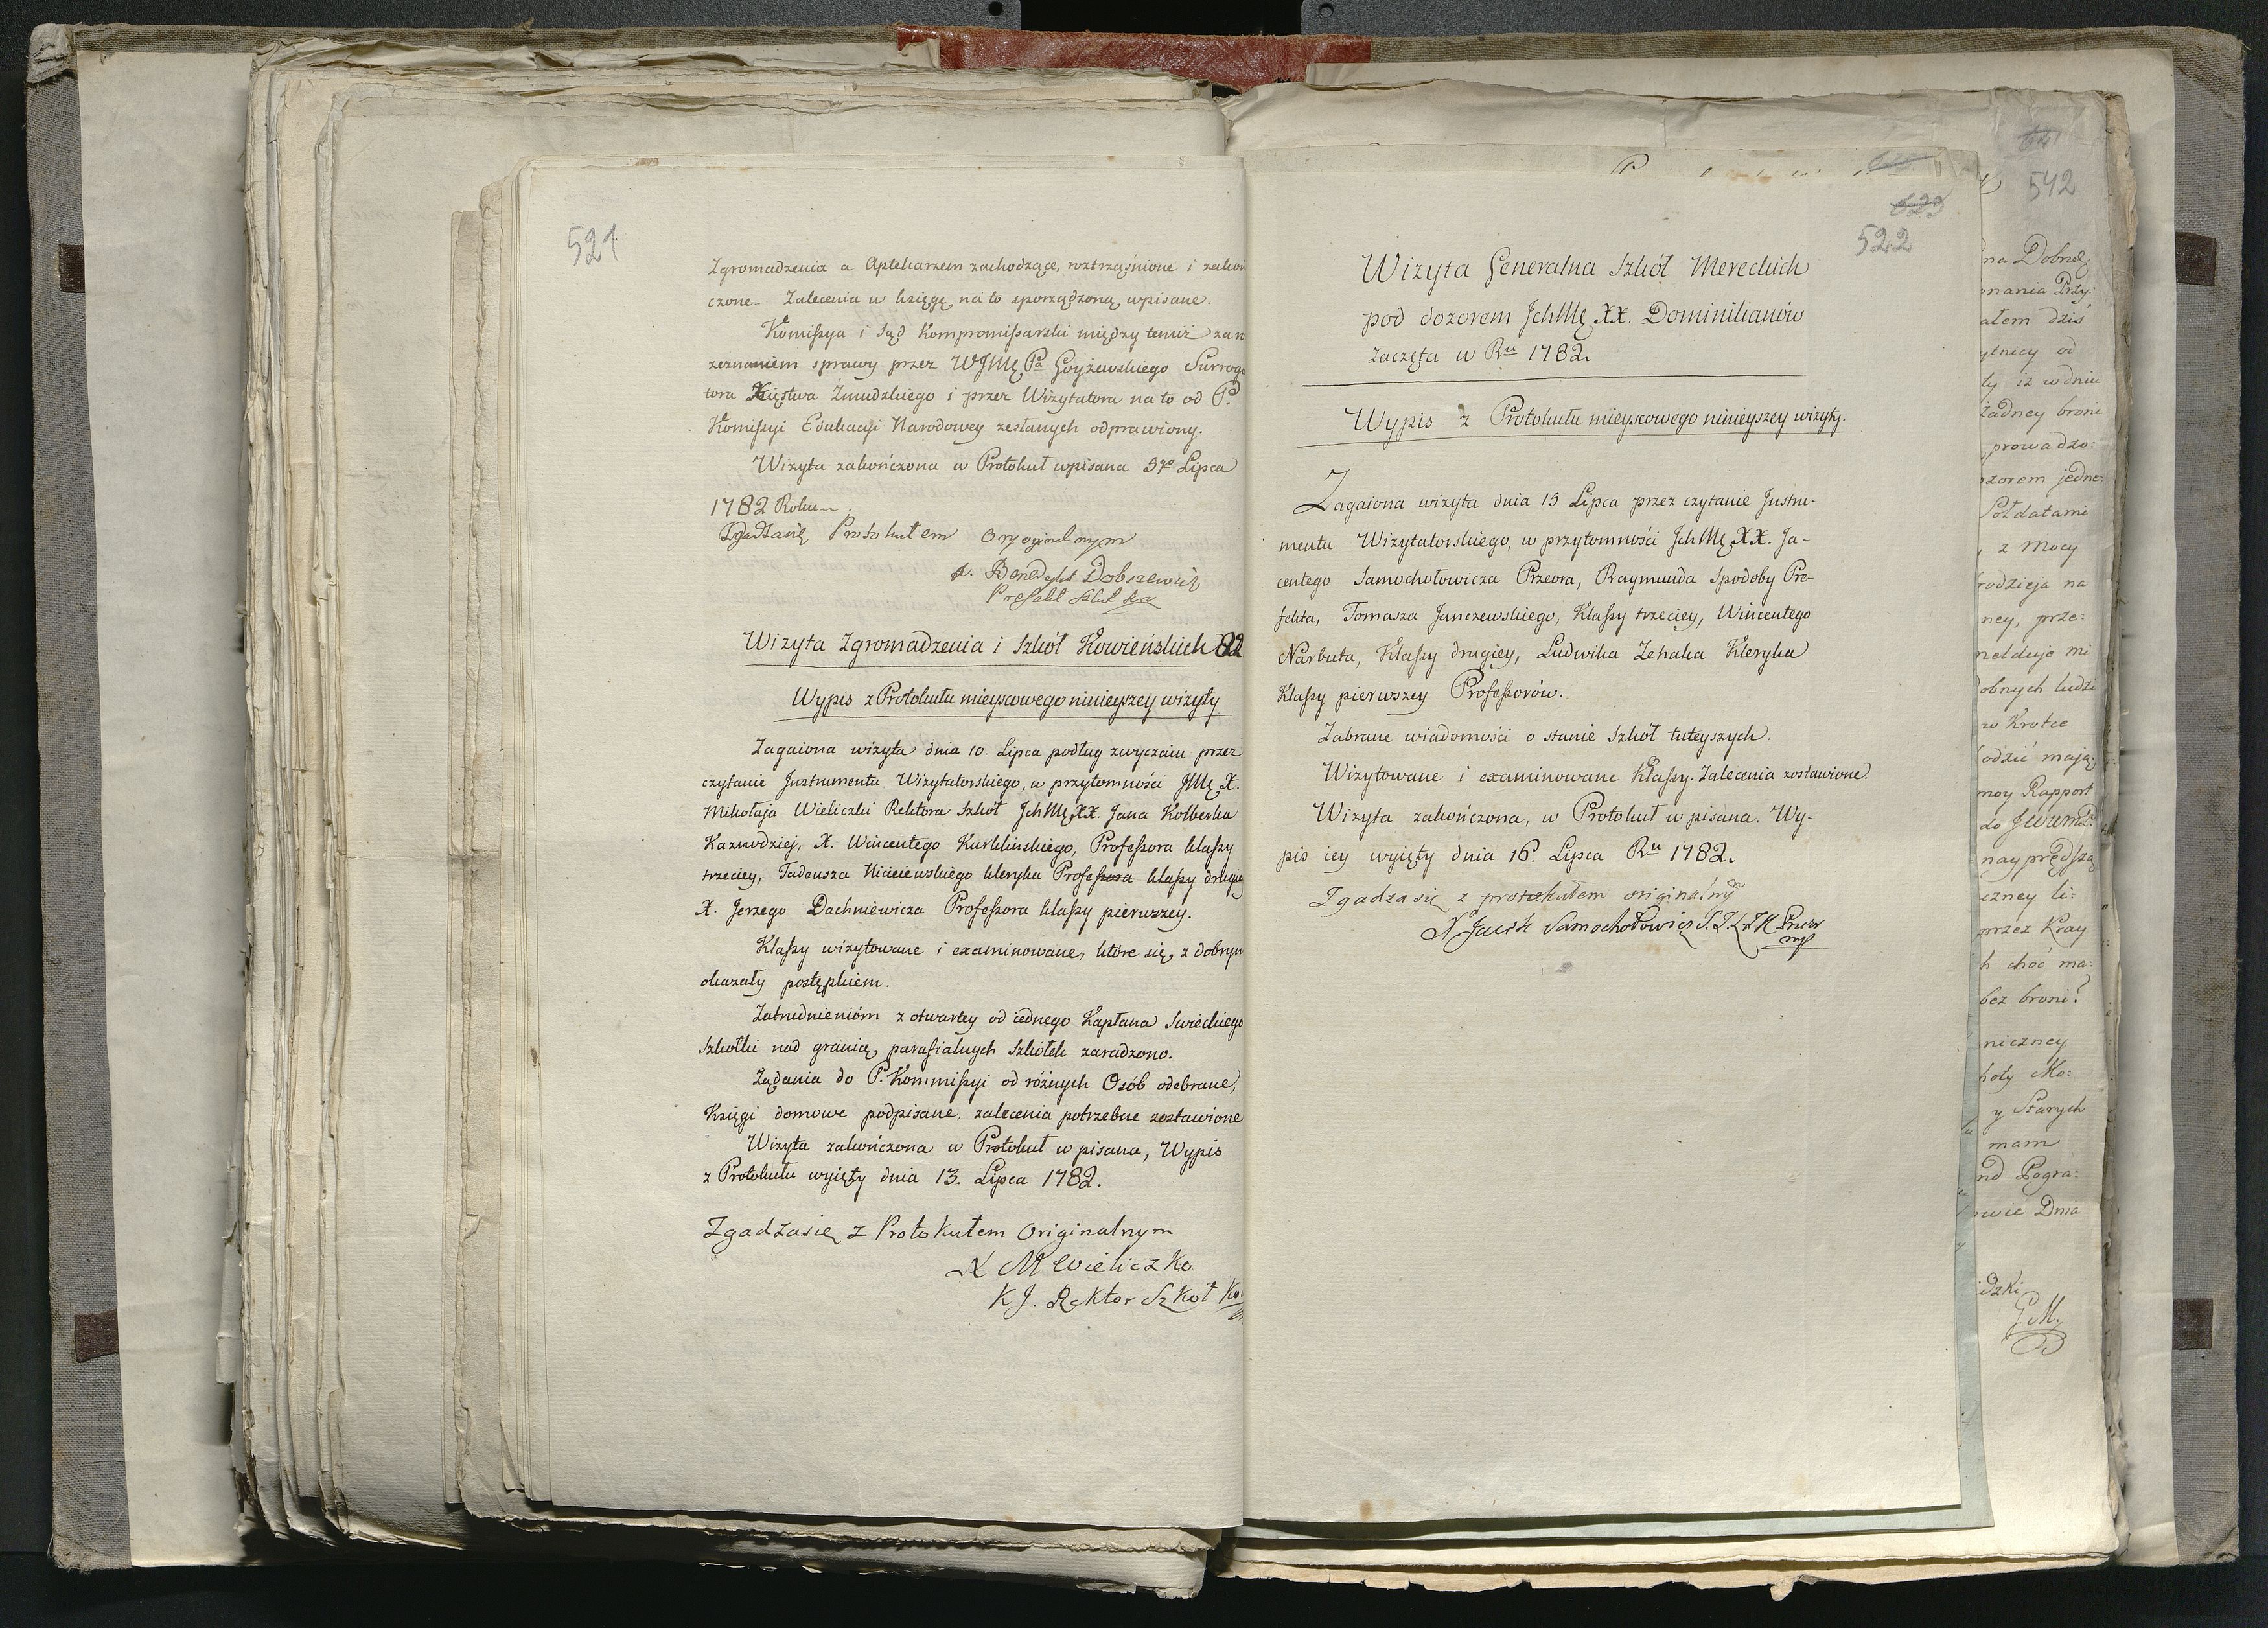 521
Zgromadzenia a Aptekarzem zachodzące, roztrząśnione i zakoń
czone. Zalecenia w księgę na to sporządzoną wpisane.
Komißya i Sąd Kompromißarski między temiż za
zeznaniem sprawy przez WJMę Pa Gryżewskiego Surroga
tora Xięstwa Zmudzkiego i przez Wizytatora na to od P.
Komißyi Edukacyi Narodowey zesłanych odprawiony.
Wizyta zakończona w Protokuł wpisana Lipca
1782 Roku
Zgadza się Protokułem oryginalnym
X. Benedykt Dobszewicz
Prefekt Szkół
Wizyta Zgromadzenia i Szkół Kowieńskich
Wypis z Protokułu mieyscowego ninieyszey wizyty
Zagaiona wizyta dnia 10. Lipca podług zwyczaiu przez
czytanie Instrumentu Wizytatorskiego, w przytomności JMę X.
Mikołaja Wieliczki Rektora Szkół JchMę XX. Jana Kolberka
Kaznodziej, X. Wincentego Kurklińskiego, Profeßora klaßy
trzeciey, Tadeusza Niciciewskiego kleryka Profeßora klaßy drugiey
X. Jerzego Dachniewicza Profeßora klaßy pierwszey.
Klaßy wizytowane i examinowane, które się z dobrym
okazały postępkiem.
Zatrudnienióm z otwartey od iednego Kapłana Swieckiego
Szkołki nad granicę parafialnych Szkółek zaradzono.
Ządania do P. Kommißyi od różnych Osób odebrane,
Księgi domowe podpisane, zalecenia potrzebne zostawione
Wizyta zakończona w Protokuł wpisana, Wypis
z Protokułu wyięty dnia 13. Lipca 1782.
Zgadzasię z Protokułem Originalnym
X M Wieliczko
KJ. Rektor Szkół
522
Wizyta Generalna Szkół Mereckich
pod dozorem JchMę XX. Dominikanów
zaczęta w Ru 1782.
Wypis z Protokułu mieyscowego ninieyszey wizyty.
Zagaiona wizyta dnia 15 Lipca przez czytanie Instru-
mentu Wizytatorskiego, w przytomności JchMę XX. Ja-
centego Samochołowicza Przeora, Raymunda Spodoby Pre-
fekta, Tomasza Janczewskiego, Klaßy trzeciey, Wincentego
Narbuta, Klaßy drugiey, Ludwika Zehaka Kleryka
Klaßy pierwszey Profeßorów.
Zabrane wiadomości o stanie Szkół tuteyszych.
Wizytowane i examinowane Klaßy. Zalecenia zostawione.
Wizyta zakończona, w Protokuł wpisana. Wy-
pis iey wyięty dnia 16. Lipca Ru 1782.
Zgadza się z protokułem originalnym
X Jacek Samochołowicz Przeor
542
na Dobrod:
mania Przy:
ałem dziś
ytnicy od
ty iż w dniu
żadney broni
prowadzo:
zorem jedne:
Sołdatami
z Mocy
rodzieja na
ney, prze:
melduje mi
obnych ludzi
w Krotce
odzić mają
moy Rapport
do
nayprędszą
czney li:
przez Kray
h choć ma:
bez broni?
niczney
hoty Mo:
y Starych
mam
nd Pogra:
wie Dnia
idzki
GM.